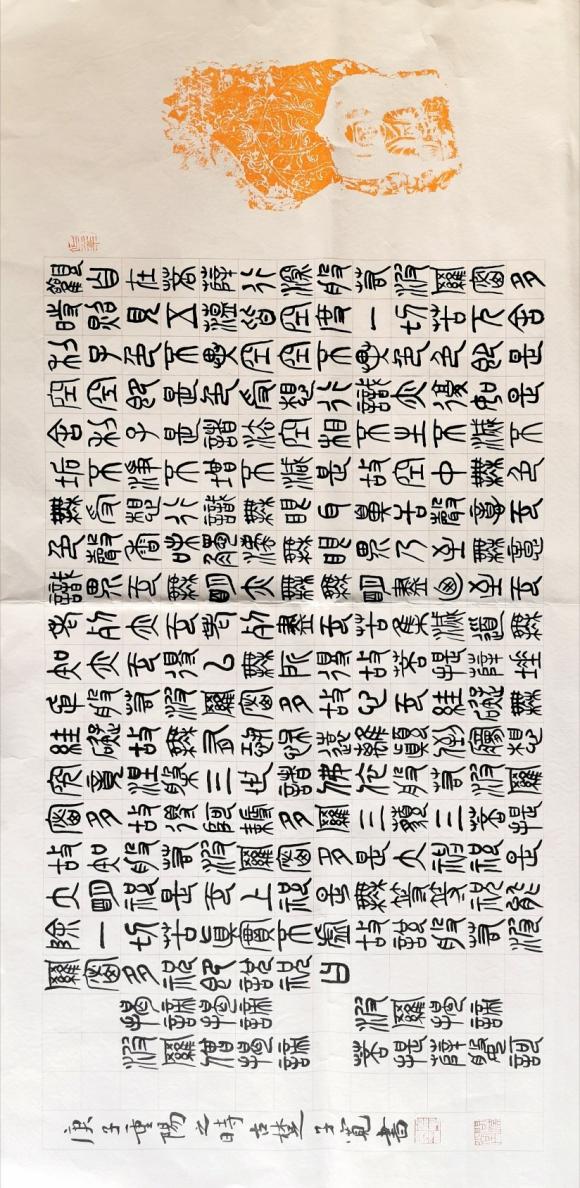 觀自在菩薩行深般若波羅蜜多
時照見五蘊皆空度一切苦厄舍
利子色不異空空不異色色即是
空空即是色受想行識亦復如是
舍利子是諸法空相不生不滅不
垢不淨不增不減是故空中無色
無受想行識無眼耳鼻舌身意无
色聲香味觸法無眼界乃至無意
識界无無明亦無無明盡乃至无
老死亦无老死盡无苦集滅道無
智亦无得以無所得故菩提薩埵
依般若波羅蜜多故心无罣礙無
罣礙故無有恐怖遠離顛倒夢想
究竟涅槃三世諸佛依般若波羅
蜜多故得阿耨多羅三藐三菩提
故知般若波羅蜜多是大神咒是
大明咒是无上咒是無等等咒能
除一切苦真實不虛故說般若波
羅蜜多咒即說咒曰
揭諦揭諦 波羅揭諦
波羅僧揭諦 菩提薩婆訶
庚子重陽之時古楚子寬書